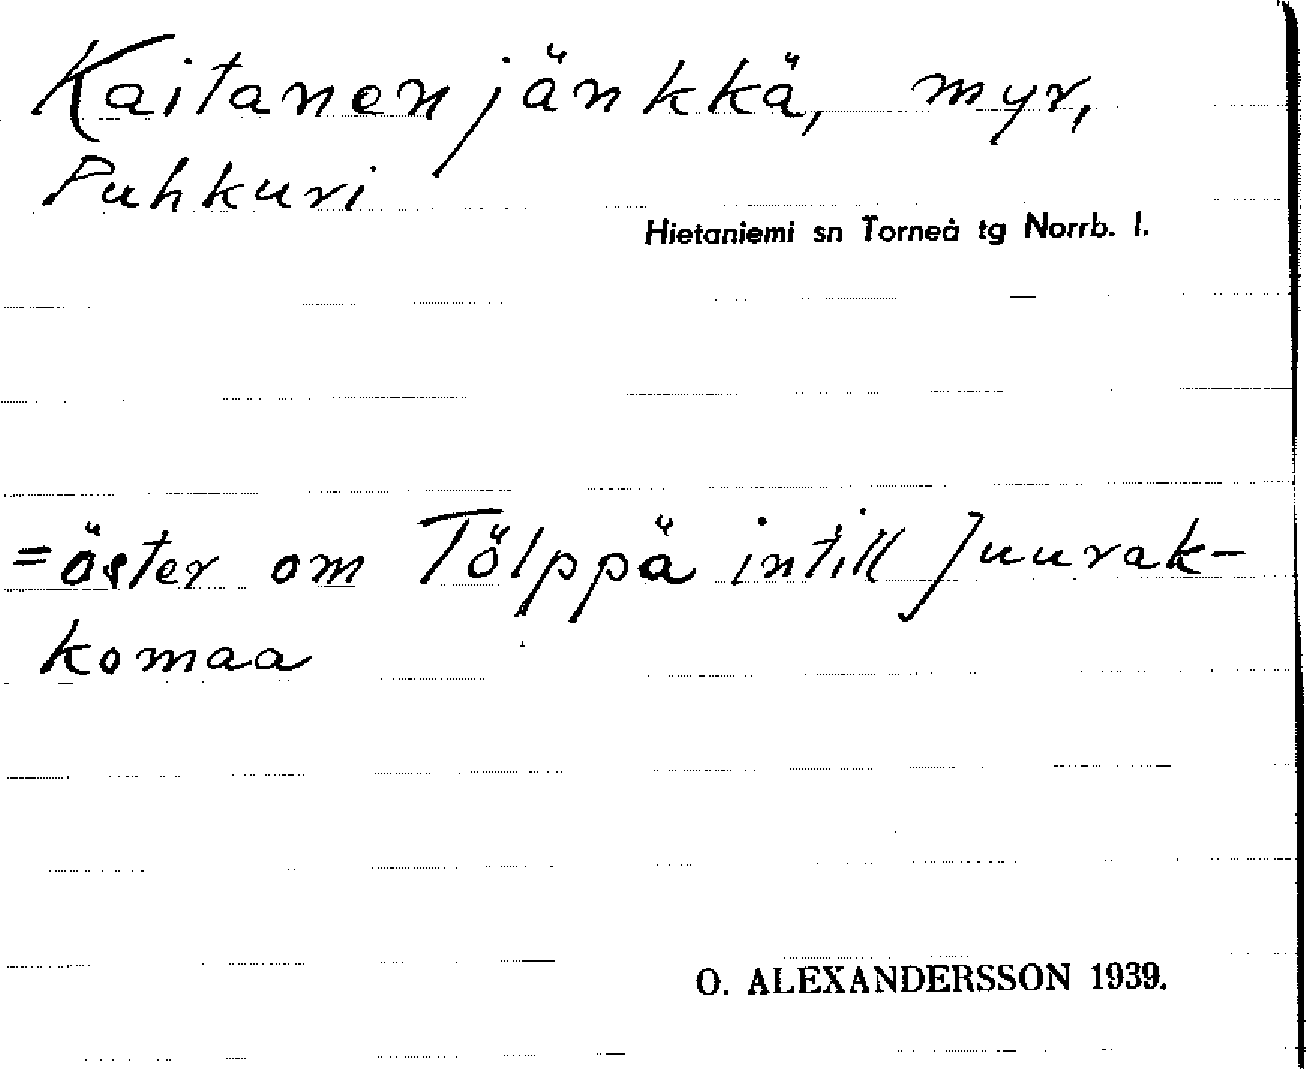 Kaitanenjänkkä, myr,
Puhkuri
Hietaniemi sn Torneå tg Norrb. l.
=öster om Tölppä intill Juurak-
komaa
O. ALEXANDERSSON 1939.